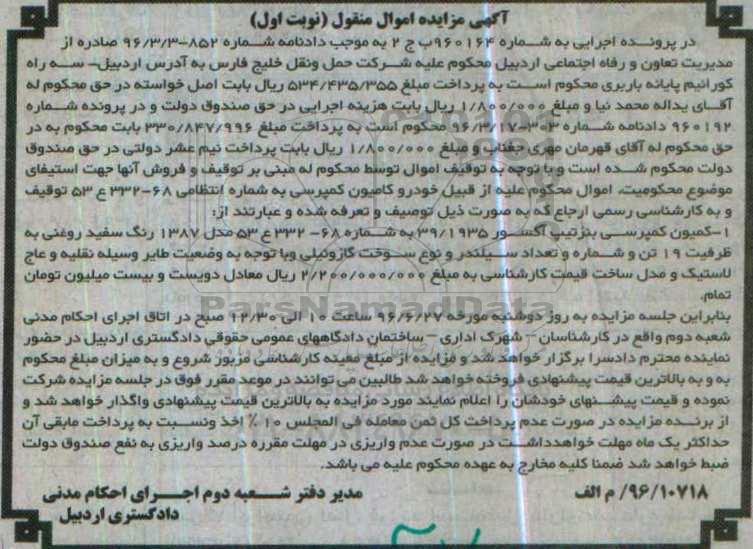 آگهی مزایده اموال منقول (نوبت اول)
در پرونده اجرایی به شماره ۹۶۰۱۶۴ ب ج ۲ به موجب دادنامه شماره ۸۵۲-۹۶/۳/۳ صادره از
مدیریت تعاون و رفاه اجتماعی اردبیل محکوم علیه شرکت حمل ونقل خلیج فارس به آدرس اردبیل- سه راه
کورائیم پایانه باربری محکوم است به پرداخت مبلغ ۵۳۴/۴۳۵/۳۵۵ ریال بابت اصل خواسته در حق محکوم له
آقای یداله محمد نیا و مبلغ ۱/۸۰۰/۰۰۰ ریال بابت هزینه اجرایی در حق صندوق دولت و در پرونده شماره
۹۶۰۱۹۲ دادنامه شماره ۳۰۳-۹۶/۳/۱۷ محکوم است به پرداخت مبلغ ۳۳۰/۸۴۷/۹۹۶ بابت محکوم به در
حق محکوم له آقای قهرمان مهری جغناب و مبلغ ۱/۸۰۰/۰۰۰ ریال بابت پرداخت نیم عشر دولتی در حق صندوق
دولت محکوم شده است و با توجه به توقیف اموال توسط محکوم له مبنی بر توقیف و فروش آنها جهت استیفای
موضوع محکومیت، اموال محکوم علیه از قبیل خودرو کامیون کمپرسی به شماره انتظامی ۶۸-۳۳۲ ع ۵۳ توقیف
و به کارشناسی رسمی ارجاع که به صورت ذیل توصیف و تعرفه شده و عبارتند از:
۱-کمیون کمپرسی بنزتیپ آکسور ۳۹/۱۹۳۵ به شماره ۶۸- ۳۳۲ ع ۵۳ مدل ۱۳۸۷ رنگ سفید روغنی به
ظرفیت ۱۹ تن و شماره و تعداد سیلندر و نوع سوخت گازوئیلی وبا توجه به وضعیت ظاهر وسیله نقلیه و عاج
لاستیک و مدل ساخت قیمت کارشناسی به مبلغ ۲/۲۰۰/۰۰۰/۰۰۰ ریال معادل دویست و بیست میلیون تومان
تمام.
بنابراین جلسه مزایده به روز دوشنبه مورخه ۹۶/۶/۲۷ ساعت ۱۰ الی ۱۲/۳۰ صبح در اتاق اجرای احکام مدنی
شعبه دوم واقع در کارشناسان - شهرک اداری - ساختمان دادگاههای عمومی حقوقی دادگستری اردبیل در حضور
نماینده محترم دادسرا برگزار خواهد شد و مزایده از مبلغ معینه کارشناسی مزبور شروع و به میزان مبلغ محکوم
به و به بالاترین قیمت پیشنهادی فروخته خواهد شد طالبین می توانند در موعد مقرر فوق در جلسه مزایده شرکت
نموده و قیمت پیشنهای خودشان را اعلام نمایند مورد مزایده به بالاترین قیمت پیشنهادی واگذار خواهد شد و
از برنده مزایده در صورت عدم پرداخت کل ثمن معامله فی المجلس ۱۰ ٪ اخذ ونسبت به پرداخت مابقی آن
حداکثر یک ماه مهلت خواهدداشت در صورت عدم واریزی در مهلت مقرره درصد واریزی به نفع صندوق دولت
ضبط خواهد شد ضمنا کلیه مخارج به عهده محکوم علیه می باشد.
۹۶/۱۰۷۱۸/ م الف
مدیر دفتر شعبه دوم اجرای احکام مدنی
دادگستری اردبیل
ParsNamadData